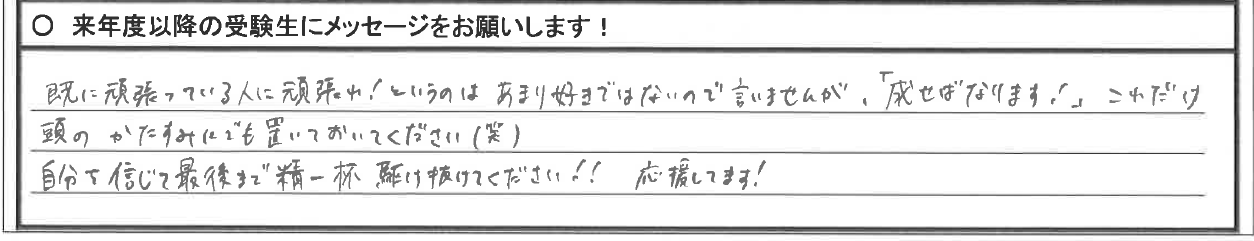 ○ 来年度以降の受験生にメッセージをお願いします！
既に頑張っている人に頑張れ！というのは あまり好きではないので言いませんが、「成せばなります！」 これだけ
頭の かたすみにでも置いておいてください(笑)
自分を信じて最後まで精一杯 駆け抜けてください!! 応援してます!